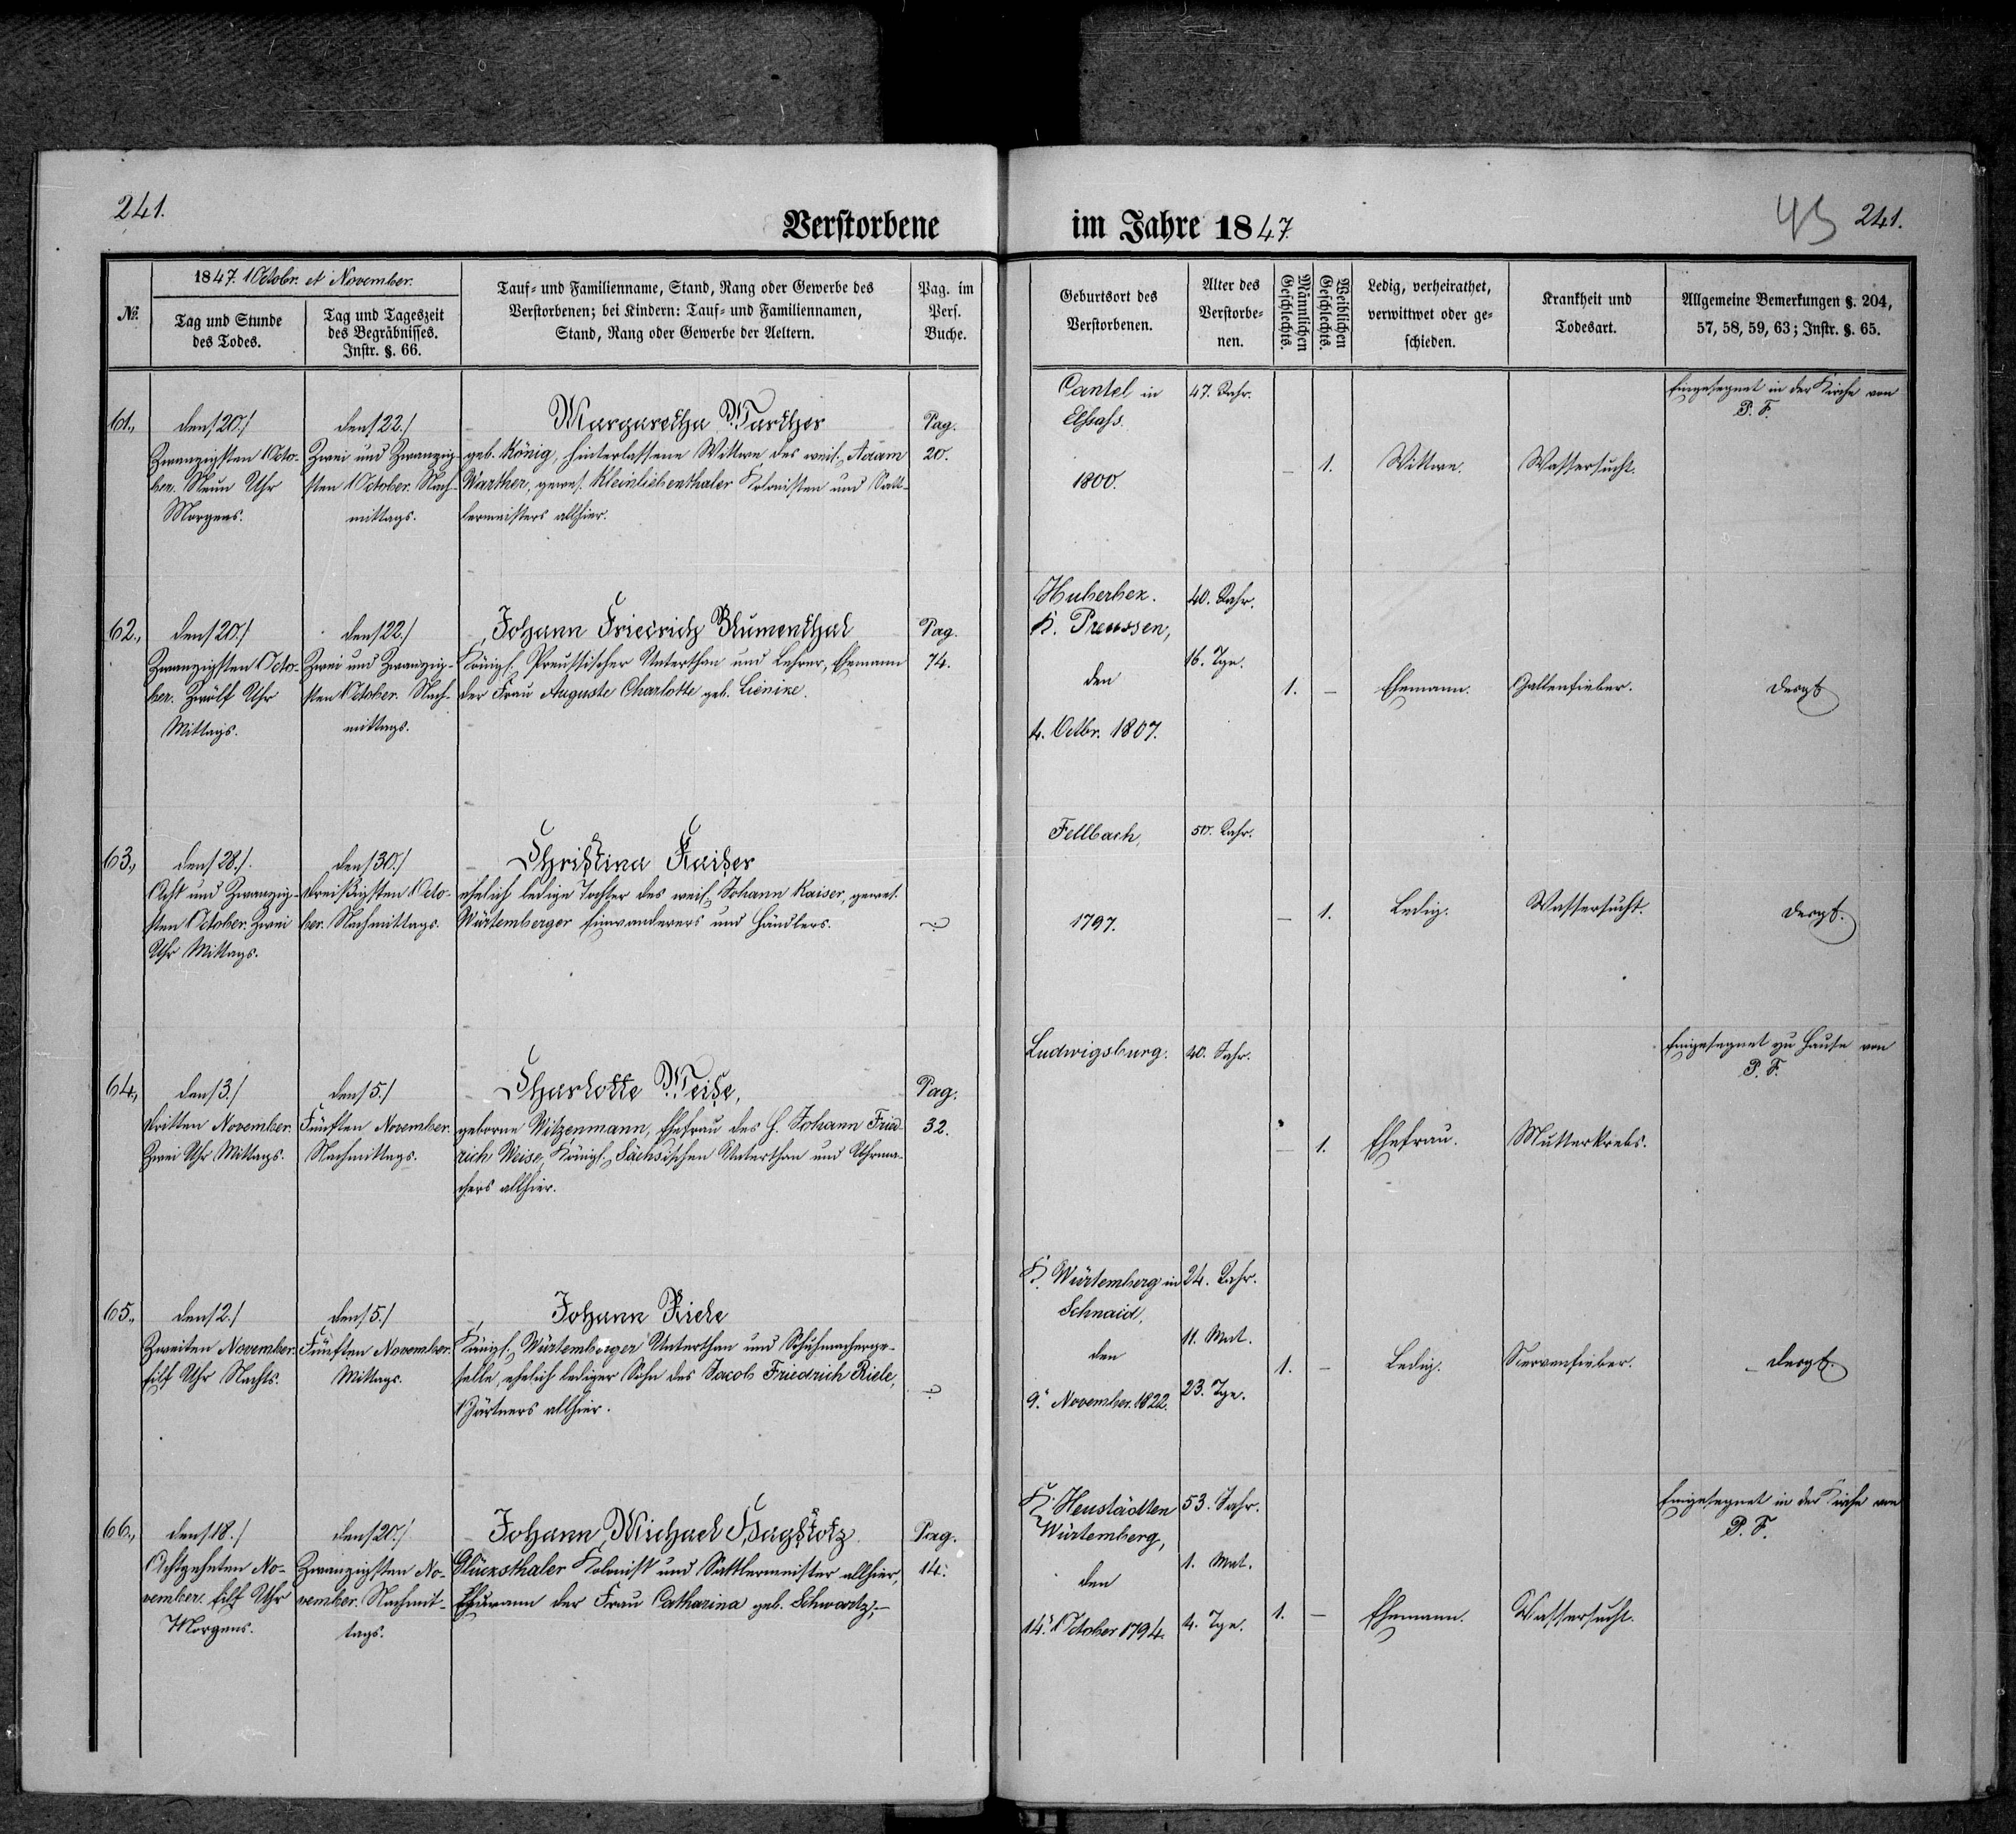 241.
Verstorbene
im Jahre 1847.
43 241.
№.
1847. October. et November.
Tag und Stunde
des Todes.
Tag und Tageszeit
des Begräbnisses.
Instr. §. 66.
Tauf- und Familienname, Stand, Rang oder Gewerbe des
Verstorbenen; bei Kindern: Tauf- und Familiennamen,
Stand, Rang oder Gewerbe der Aeltern.
Pag. im
Pers.
Buche.
Geburtsort des
Verstorbenen.
Alter des
Verstorbe-
nen.
Männlichen
Geschlechts.
Weiblichen
Geschlechts.
Ledig, verheirathet,
verwittwet oder ge-
schieden.
Krankheit und
Todesart.
Allgemeine Bemerkungen §. 204,
57, 58, 59, 63; Instr. §. 65.
61.,
den /20./
Zwanzigsten Octo-
ber. Neun Uhr
Morgens.
den /22./
Zwei und Zwanzig-
sten October. Nach-
mittags.
Margaretha Warther
geb. König, hinterlassene Wittwe des weil. Adam
Warther, gewes. Kleinliebenthaler Kolonisten und Satt-
lermeisters allhier.
Pag.
20.
Cantel in
Elsass.
1800.
47. Jahr.
–
1.
Wittwe.
Wassersucht.
Eingesegnet in der Kirche von
P. F.
62.,
den /20./
Zwanzigsten Octo-
ber. Zwölf Uhr
Mittags.
den /22./
Zwei und Zwanzig-
sten October. Nach-
mittags.
Johann Friedrich Blumenthal
Königl. Preussischer Unterthan und Lehrer, Ehemann
der Frau Auguste Charlotte geb. Lienike.
Pag.
74.
Huberbex.
K. Preussen,
den
4. Octbr. 1807.
40. Jahr.
16. Tge.
1.
–
Ehemann.
Gallenfieber.
desgl.
63.,
den /28./
Acht und Zwanzig-
sten October. Zwei
Uhr Mittags.
den /30./
dreißigsten Octo-
ber. Nachmittags.
Christina Kaiser
ehelich ledige Tochter des weil. Johann Kaiser, gewes.
Würtemberger Einwanderers und Händlers.
Fellbach,
1797.
50. Jahr.
–
1.
Ledig.
Wassersucht.
desgl.
64.,
den /3./
dritten November.
Zwei Uhr Mittags.
den /5./
Fünften November.
Nachmittags.
Charlotte Weise,
geborne Witzenmann, Ehefrau des H. Johann Fried-
rich Weise, Königl. Sächsischen Unterthan und Uhrma-
chers allhier.
Pag.
32.
Ludwigsburg.
40. Jahr.
–
1.
Ehefrau.
Mutterkrebs.
Eingesegnet zu Hause von
P. F.
65.,
den /2./
Zweiten November.
Eilf Uhr Nachts.
den /5./
Fünften November.
Mittags.
Johann Riele
Königl. Würtemberger Unterthan und Schuhmacherge-
selle, ehelich lediger Sohn des Jacob Friedrich Riele,
Gärtners allhier.
K. Würtemberg in
Schnaid,
den
9. November. 1822.
24. Jahr.
11. Mnt.
23. Tge.
1.
–
Ledig.
Nervenfieber.
desgl.
66.,
den /18./
Achtzehnten No-
vember. Eilf Uhr
Morgens.
den /20./
Zwanzigsten No-
vember. Nachmit-
tags.
Johann Michael Hagstotz
Glücksthaler Kolonist und Sattlermeister allhier,
Ehemann der Frau Catharina geb. Schwartz,–
Pag.
14.
K. Heustädten
Würtemberg,
den
14. October 1794.
53. Jahr.
1. Mnt.
4. Tge.
1.
–
Ehemann.
Wassersucht.
Eingesegnet in der Kirche von
P. F.